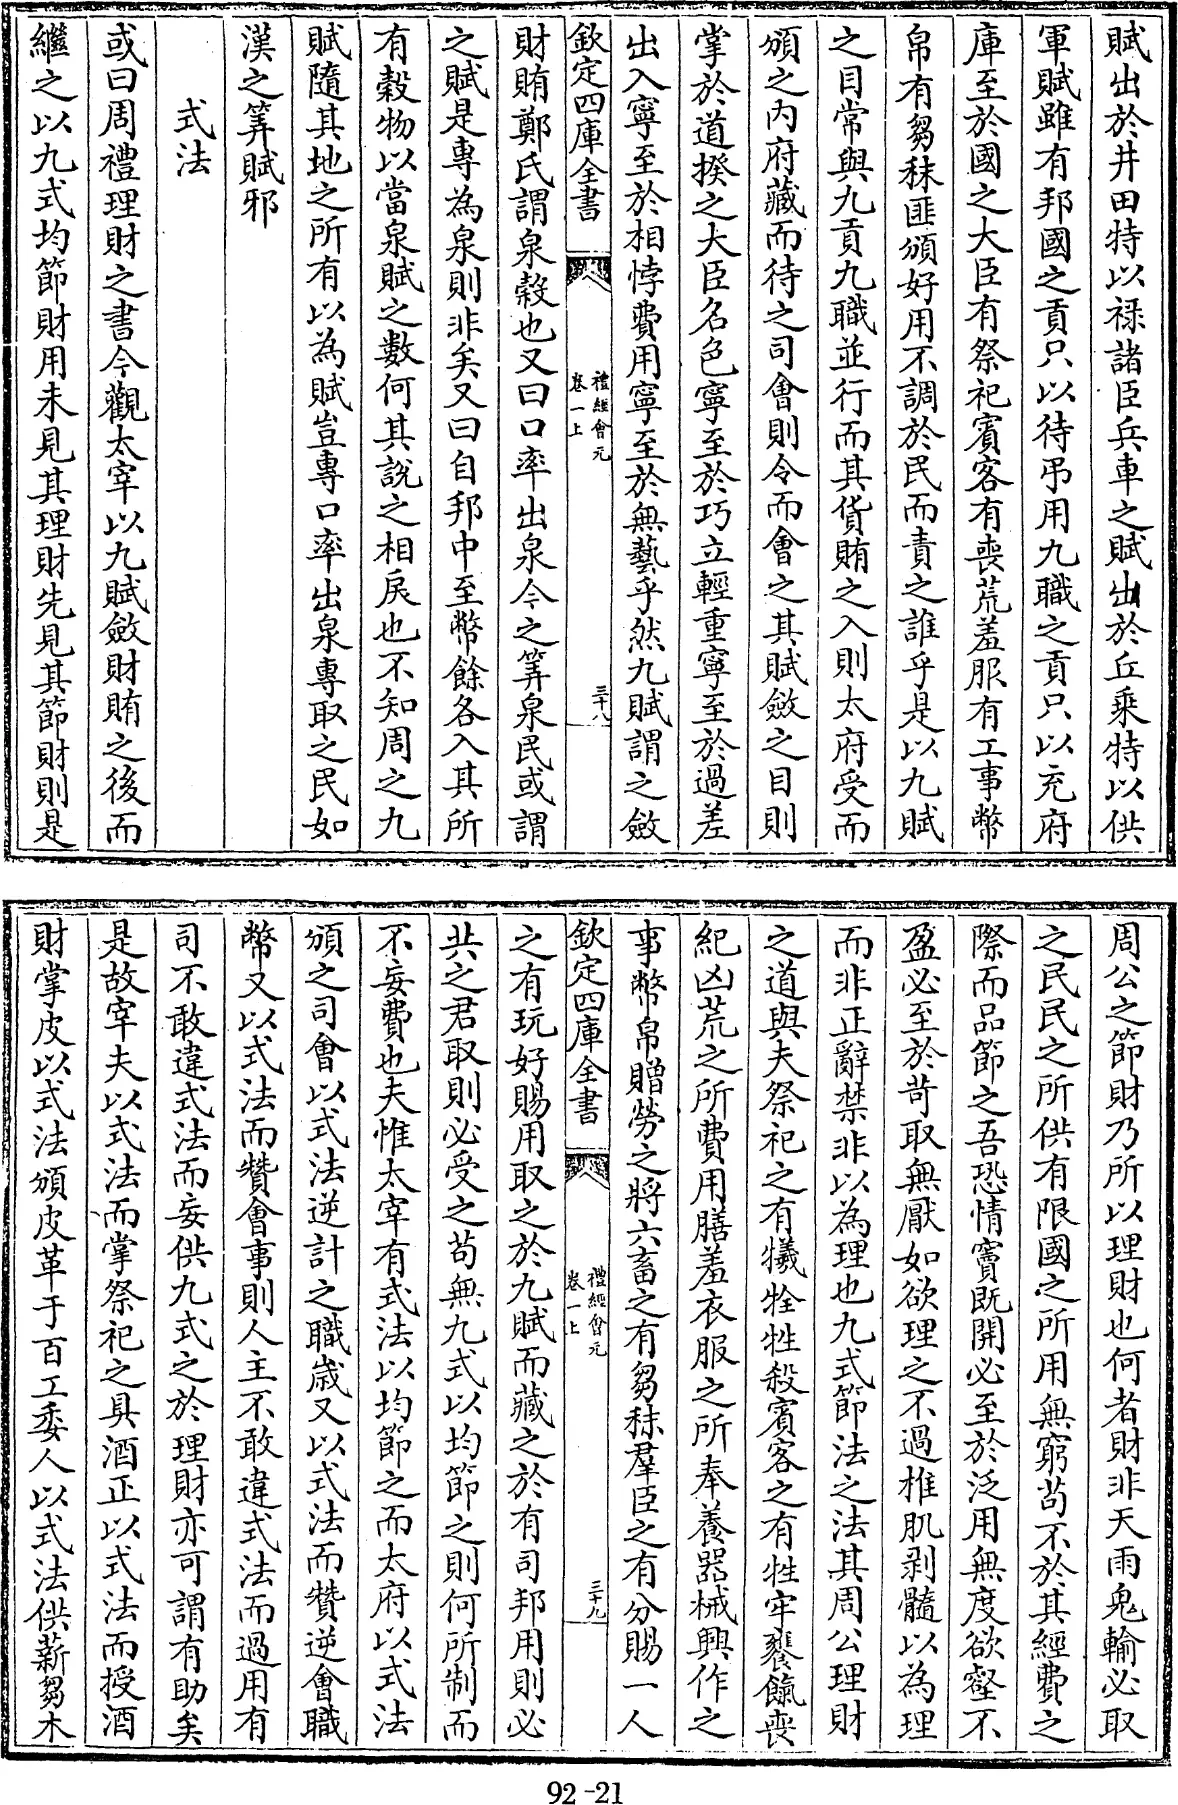 賦出於井田特以祿諸臣兵車之賦出於丘乘特以供
軍賦雖有邦國之貢只以待弔用九職之貢只以充府
庫至於國之大臣有祭祀賓客有喪荒羞服有工事幣
帛有芻秣匪頒好用不調於民而責之誰乎是以九賦
之目常與九貢九職並行而其貨賄之入則太府受而
頒之內府藏而待之司會則令而會之其賦斂之目則
掌於道揆之大臣名色寧至於巧立輕重寧至於過差
出入寧至於相悖費用寧至於無藝乎然九賦謂之斂
欽定四庫全書
禮經會元
卷一上
三十八
財賄鄭氏謂泉穀也又曰口率出泉今之筭泉民或謂
之賦是專為泉則非矣又曰自邦中至幣餘各入其所
有穀物以當泉賦之數何其說之相戾也不知周之九
賦隨其地之所有以為賦豈專口率出泉專取之民如
漢之筭賦邪
式法
或曰周禮理財之書今觀太宰以九賦斂財賄之後而
繼之以九式均節財用未見其理財先見其節財則是
周公之節財乃所以理財也何者財非天雨鬼輸必取
之民民之所供有限國之所用無窮苟不於其經費之
際而品節之吾恐情竇既開必至於泛用無度欲壑不
盈必至於苛取無厭如欲理之不過椎肌剥髓以為理
而非正辭禁非以為理也九式節法之法其周公理財
之道與夫祭祀之有犧牷牲殺賓客之有牲牢饔餼喪
紀凶荒之所費用膳羞衣服之所奉養器械興作之
事幣帛贈勞之將六畜之有芻秣羣臣之有分賜一人
欽定四庫全書
禮經會元
卷一上
三十九
之有玩好賜用取之於九賦而藏之於有司邦用則必
共之君取則必受之苟無九式以均節之則何所制而
不妄費也夫惟太宰有式法以均節之而太府以式法
頒之司會以式法逆計之職歳又以式法而贊逆會職
幣又以式法而贊會事則人主不敢違式法而過用有
司不敢違式法而妄供九式之於理財亦可謂有助矣
是故宰夫以式法而掌祭祀之具酒正以式法而授酒
財掌皮以式法頒皮革于百工委人以式法供薪芻木
92-21